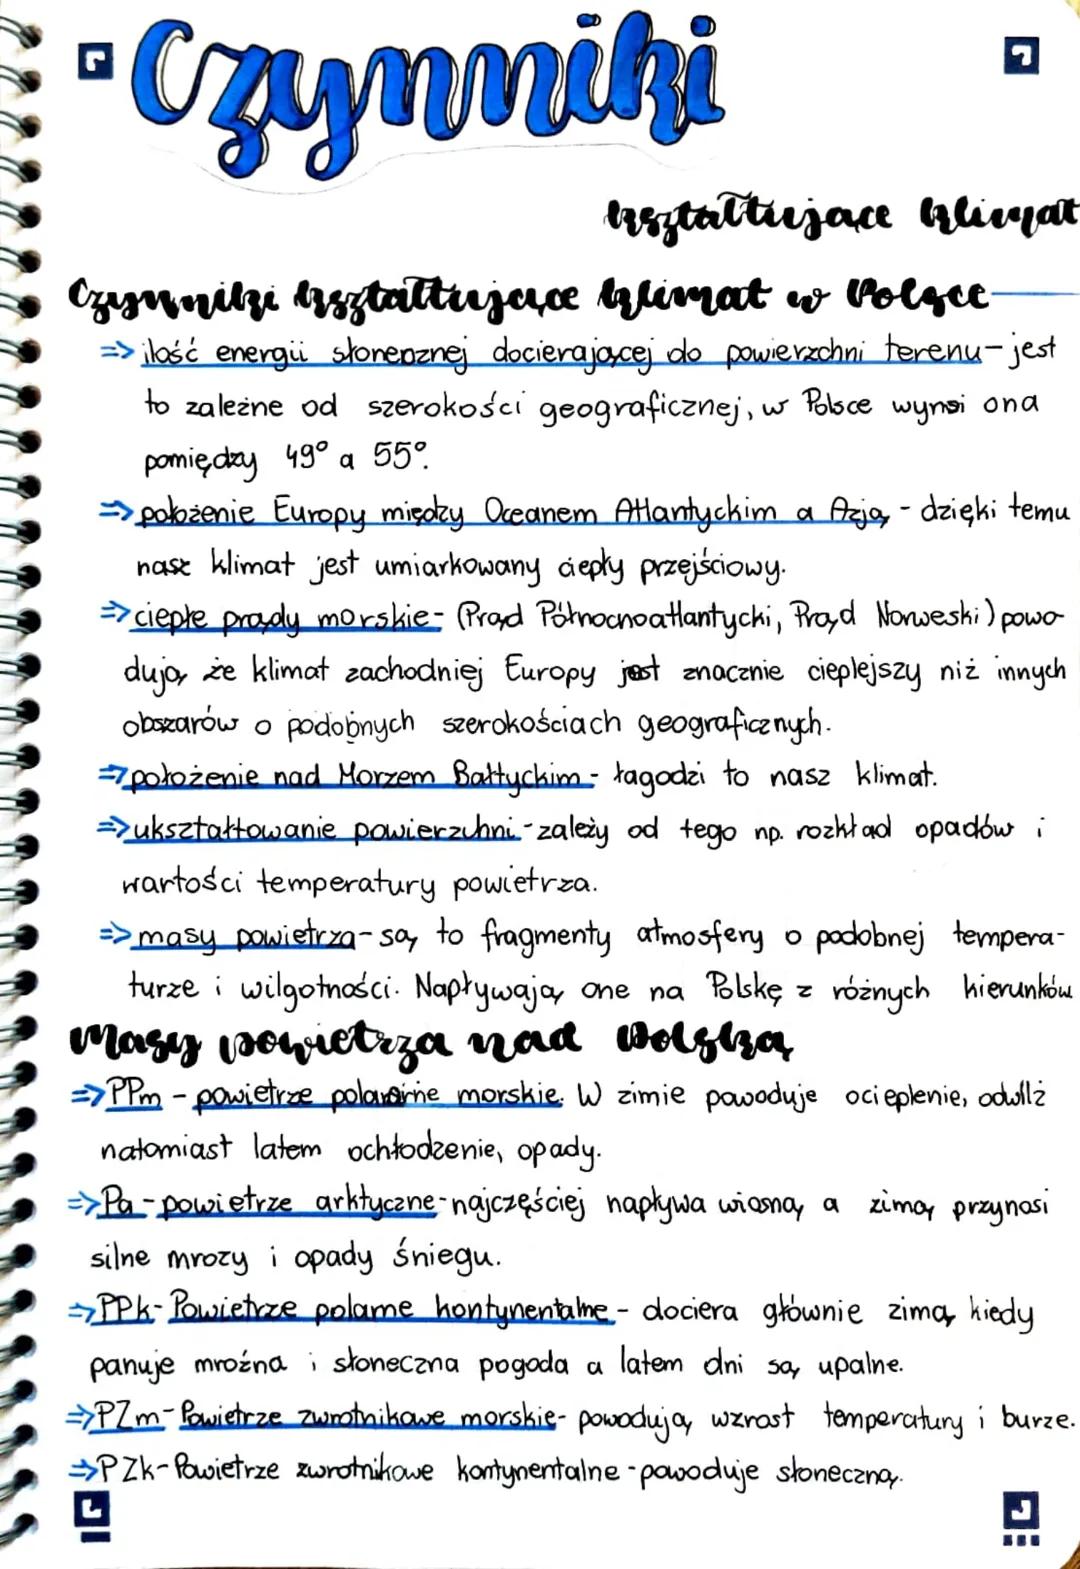 Czynniki
kształtujące klimat
Czynniki kształtujące klimat w Polsce
=> ilość energii słonecznej docierającej do powierzchni terenu - jest
to zależne od szerokości geograficznej, w Polsce wynosi ona
pomiędzy 49° a 55°.
=> położenie Europy między Oceanem Atlantyckim a Azją - dzięki temu
nasz klimat jest umiarkowany ciepły przejściowy.
=> ciepłe prądy morskie - (Prąd Północnoatlantycki, Prąd Norweski) powo-
dują, że klimat zachodniej Europy jest znacznie cieplejszy niż innych
obszarów o podobnych szerokościach geograficznych.
=> położenie nad Morzem Bałtyckim - łagodzi to nasz klimat.
=> ukształtowanie powierzchni - zależy od tego np. rozkład opadów i
wartości temperatury powietrza.
=> masy powietrza - są to fragmenty atmosfery o podobnej tempera-
turze i wilgotności. Napływają one na Polskę z różnych kierunków
Masy powietrza nad Polską
=> PPm - powietrze polarne morskie. W zimie powoduje ocieplenie, odwilż
natomiast latem ochłodzenie, opady.
=> Pa - powietrze arktyczne - najczęściej napływa wiosną, a zimą przynosi
silne mrozy i opady śniegu.
=> PPk - Powietrze polarne kontynentalne - dociera głównie zimą, kiedy
panuje mroźna i słoneczna pogoda a latem dni są upalne.
=> PZm - Powietrze zwrotnikowe morskie - powodują wzrost temperatury i burze.
=> PZk - Powietrze zwrotnikowe kontynentalne - powoduje słoneczną.